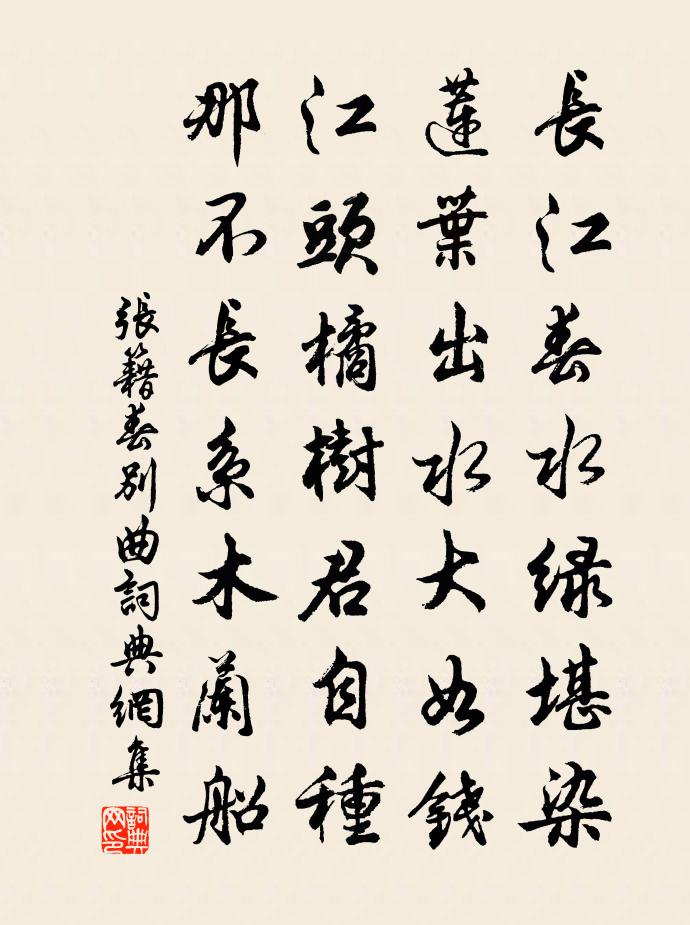 長江春水綠堪染
蓮葉出水大如錢
江頭橘樹君自種
那不長系木蘭船
張籍春別曲詞典網集
詞典網印